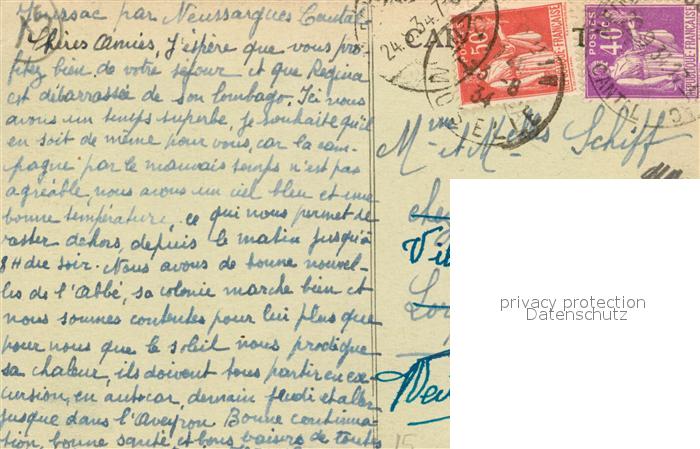 Joursac par Neussargues Cantal
Chères Amies, J'espère que vous pro-
fitez bien de votre séjour et que Regina
est débarrassée de son lombago. Ici nous
avons un temps superbe, je souhaite qu'il
en soit de même pour vous, car la cam-
pagne par le mauvais temps n'est pas
agréable, nous avons un ciel bleu et une
bonne température, ce qui nous permet de
rester dehors, depuis le matin jusqu'à
8H du soir. Nous avons de bonne nouvel-
les de l'Abbé, sa colonie marche bien et
nous sommes contentes pour lui plus que
pour nous que le soleil nous prodigue
sa chaleur, ils doivent tous partir en ex-
cursion, en autocar, demain jeudi et aller
jusque dans l'Aveyron Bonne continua-
tion, bonne santé et bons baisers de toutes
CA
T
POSTES
50
POSTES
40c
CANTAL
Mme et Melles Schiff
chez
Vil
privacy protection
Datenschutz
15